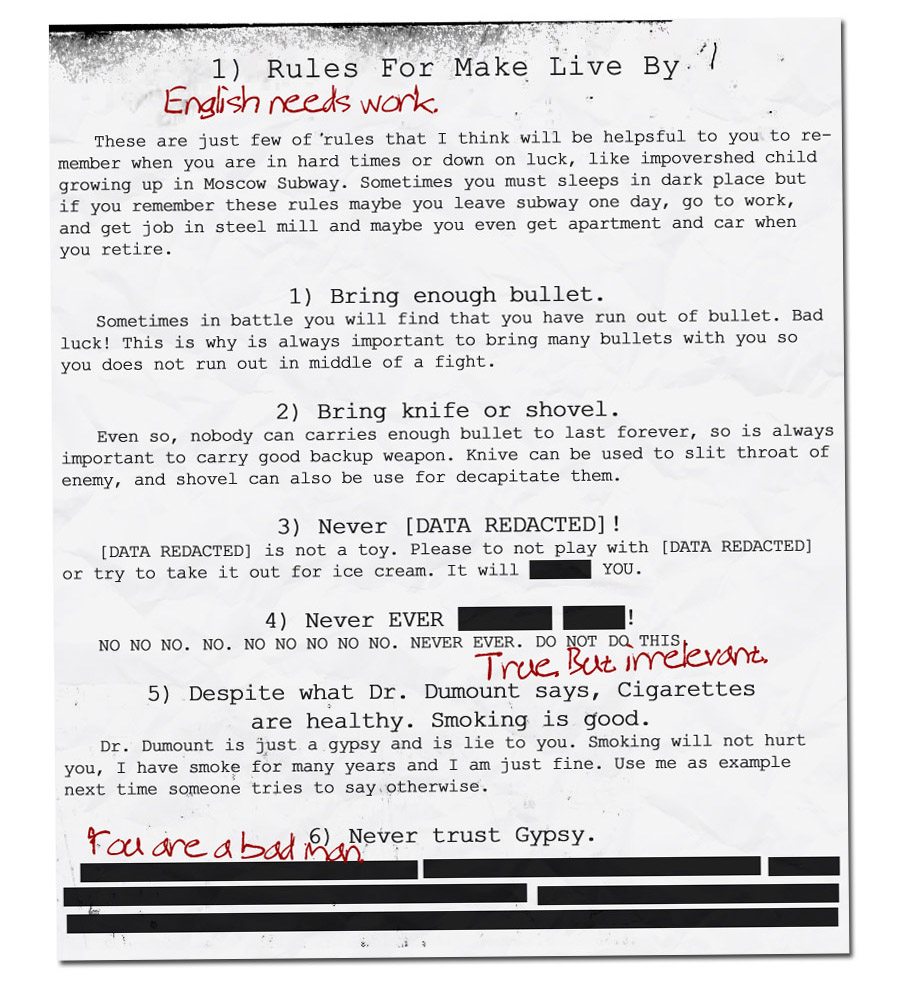 1) Rules For Make Live By
English needs work.
These are just few of rules that I think will be helpsful to you to re-
member when you are in hard times or down on luck, like impovershed child
growing up in Moscow Subway. Sometimes you must sleeps in dark place but
if you remember these rules maybe you leave subway one day, go to work,
and get job in steel mill and maybe you even get apartment and car when
you retire.
1) Bring enough bullet.
Sometimes in battle you will find that you have run out of bullet. Bad
luck! This is why is always important to bring many bullets with you so
you does not run out in middle of a fight.
2) Bring knife or shovel.
Even so, nobody can carries enough bullet to last forever, so is always
important to carry good backup weapon. Knive can be used to slit throat of
enemy, and shovel can also be use for decapitate them.
3) Never [DATA REDACTED]!
[DATA REDACTED] is not a toy. Please to not play with [DATA REDACTED]
or try to take it out for ice cream. It will YOU.
4) Never EVER !
NO NO NO. NO. NO NO NO NO NO. NEVER EVER. DO NOT DO THIS.
True. But irrelevant.
5) Despite what Dr. Dumount says, Cigarettes
are healthy. Smoking is good.
Dr. Dumount is just a gypsy and is lie to you. Smoking will not hurt
you, I have smoke for many years and I am just fine. Use me as example
next time someone tries to say otherwise.
6) Never trust Gypsy.
You are a bad man.